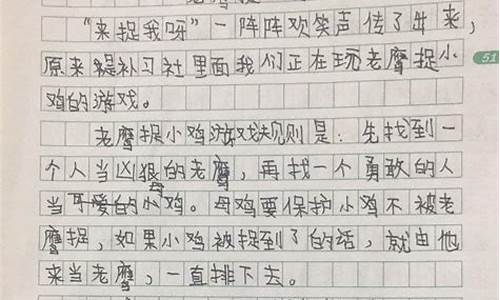 “来捉我呀”一阵阵欢笑声传了出来,
原来是补习社里面我们正在玩老鹰捉小
51
鸡的游戏。
老鹰捉小鸡游戏规则是：先找到一
个人当凶狠的老鹰，再找一个勇敢的人
当母鸡。母鸡要保护小鸡不被老
鹰捉，如果小鸡被捉到了的话，就由他
来当老鹰，一直排下去。